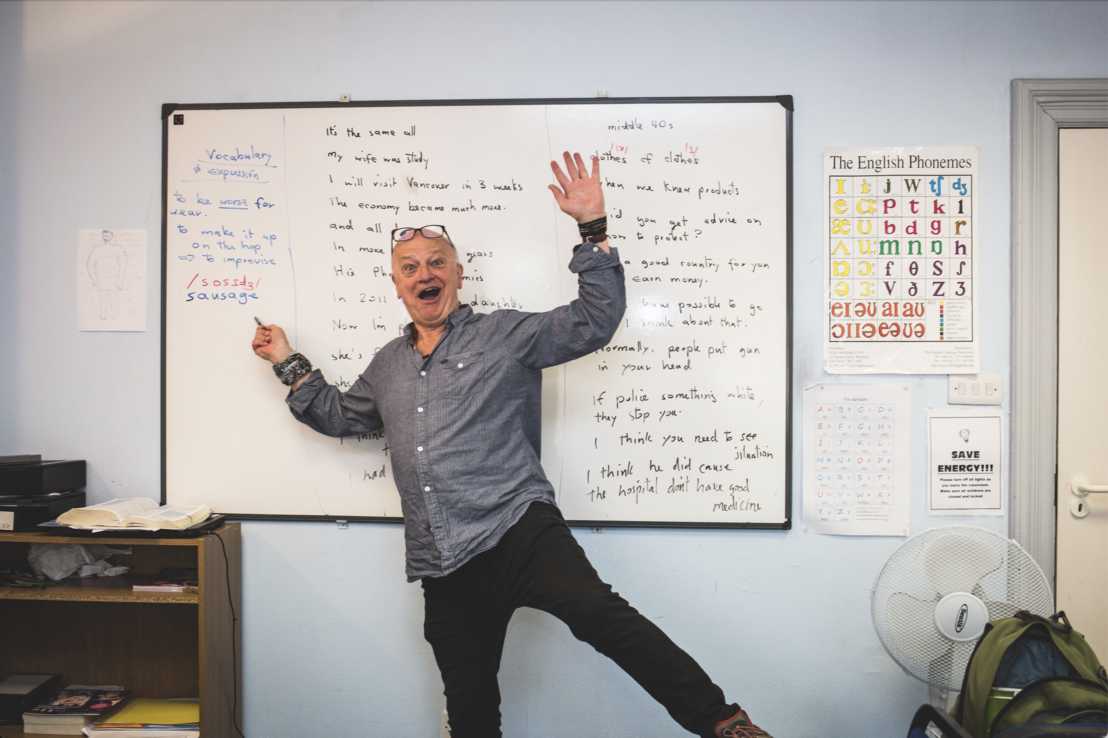 Vocabulary
& expression
to be worse for
wear.
to make it up
on the hop
=> to improvise
/sɒsɪdʒ/
sausage
It's the same all
my wife was study
I will visit Vancover in 3 weeks
The economy became much more.
and all
In more years
His
In 2011 daughter
Now I'm
she's
I think
had
middle 40s
clothes of clothes
when we knew products
did you get advice on
how to protect?
a good country for you
earn money.
how possible to go
I think about that.
Normally, people put gun
in your head
If police something white,
they stop you.
I think you need to see
situation
I think he did cause
the hospital don't have good
medicine
The English Phonemes
I i: j W tʃ dʒ
e ɑ: p t k l
æ U b d g r
ʌ u: m n ŋ h
ɒ ɔ: f θ S ʃ
v ð Z ʒ
eI əU aI aU
ɔI Iə eə Uə
The alphabet
A B C D
E F G H
I J K L
M N O P
Q R S T
U V W X
Y Z
SAVE
ENERGY!!!
Please turn off all lights as
you leave the classroom.
Make sure all windows are
closed and locked